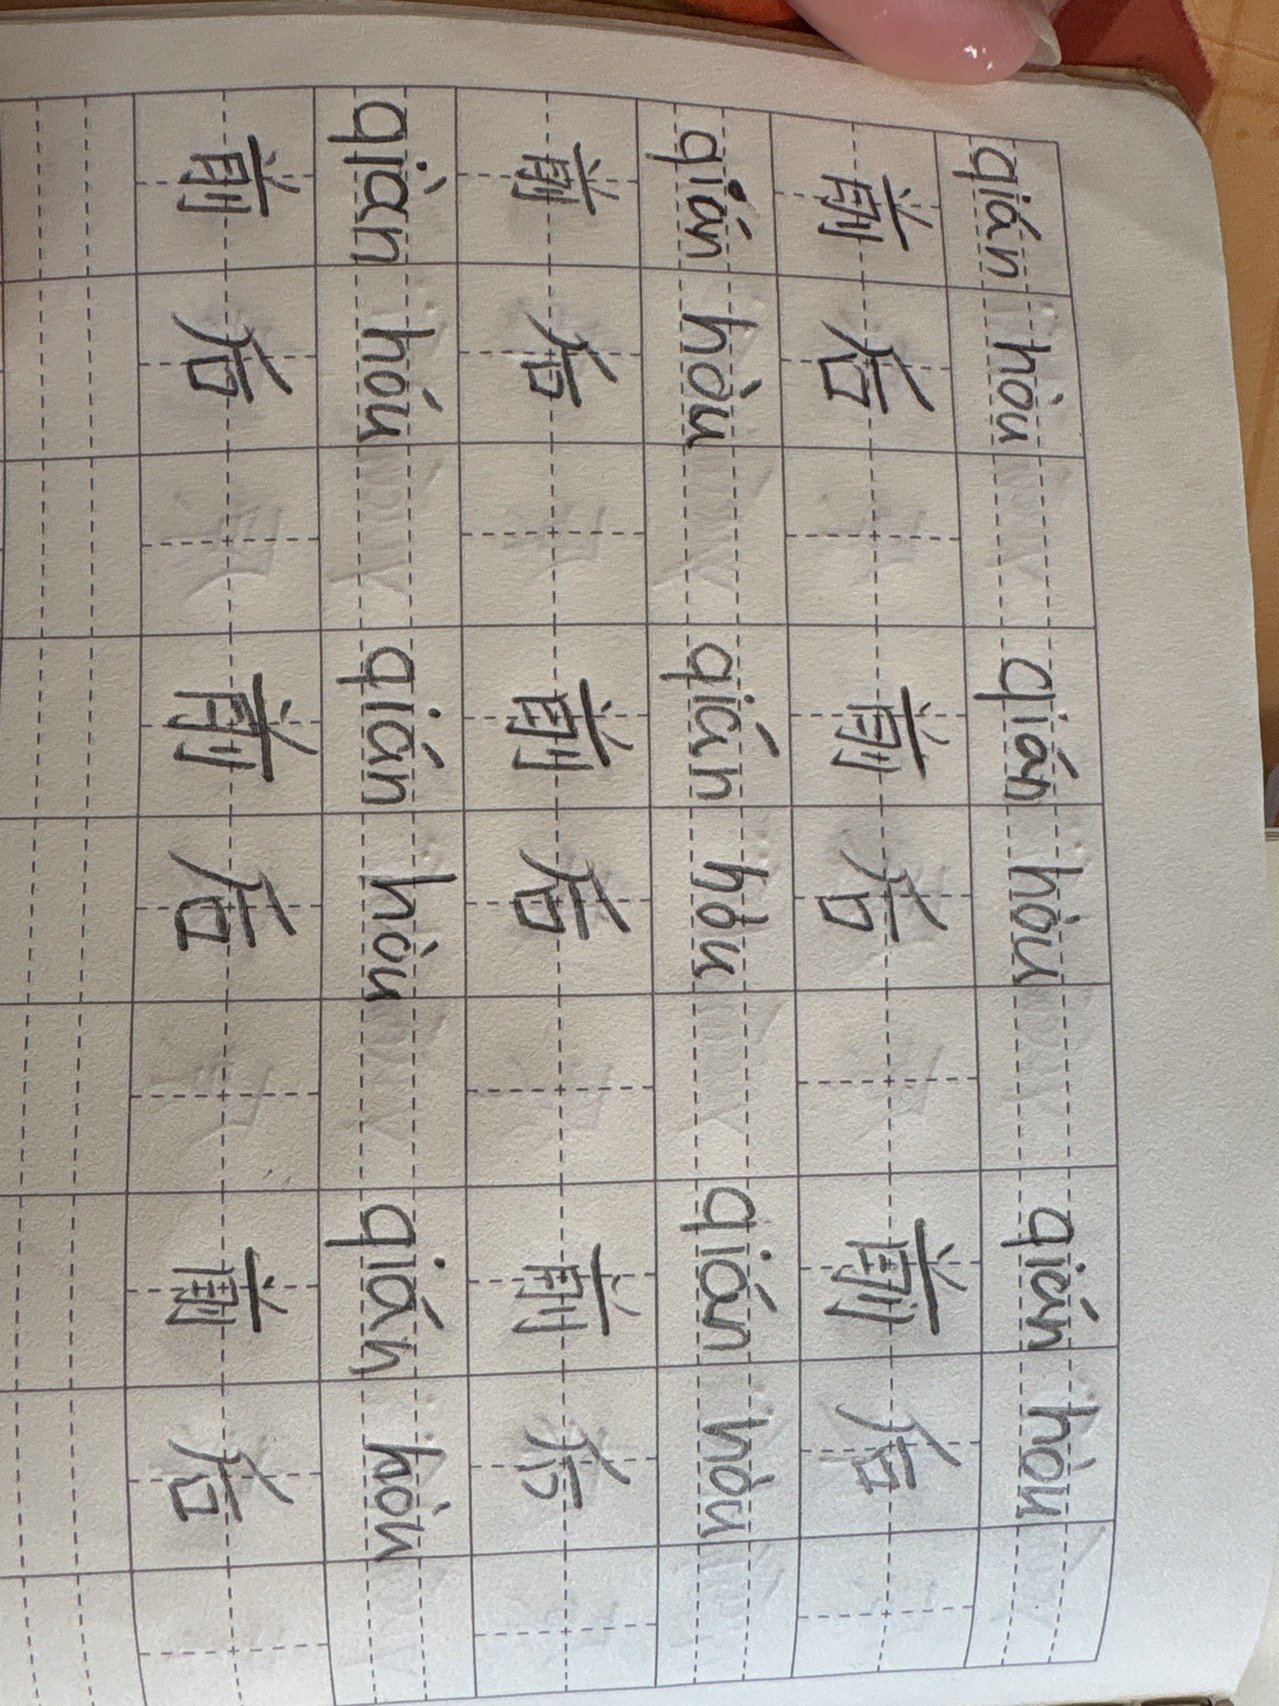 qián hòu qián hòu qián hòu
前后 前后 前后
qián hòu qián hòu qián hòu
前后 前后 前后
qiàn hóu qián hòu qián hòu
前后 前后 前后